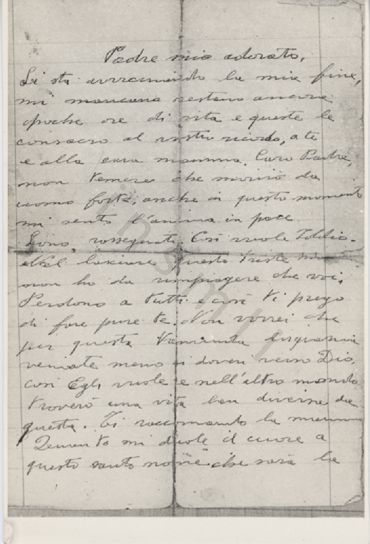 Padre mio adorato,
Si sta avvicinando la mia fine,
mi mancano restano ancora
poche ore di vita e queste le
consacro al vostro ricordo, a te
e alla cara mamma. Caro Padre,
non temere che morirò da
uomo forte, anche in questo momento
mi sento l'anima in pace
Sono rassegnato. Così vuole Iddio.
Nel lasciare questo triste mondo
non ho da rimpiangere che voi.
Perdono a tutti e così ti prego
di fare pure te. Non vorrei che
per questa tremenda
veniate meno ai doveri verso Dio,
così Egli vuole e nell'altro mondo
troverò una vita ben diversa da
questa. Ti raccomando la mamma
Quanto mi duole il cuore a
questo santo nome che sarà la